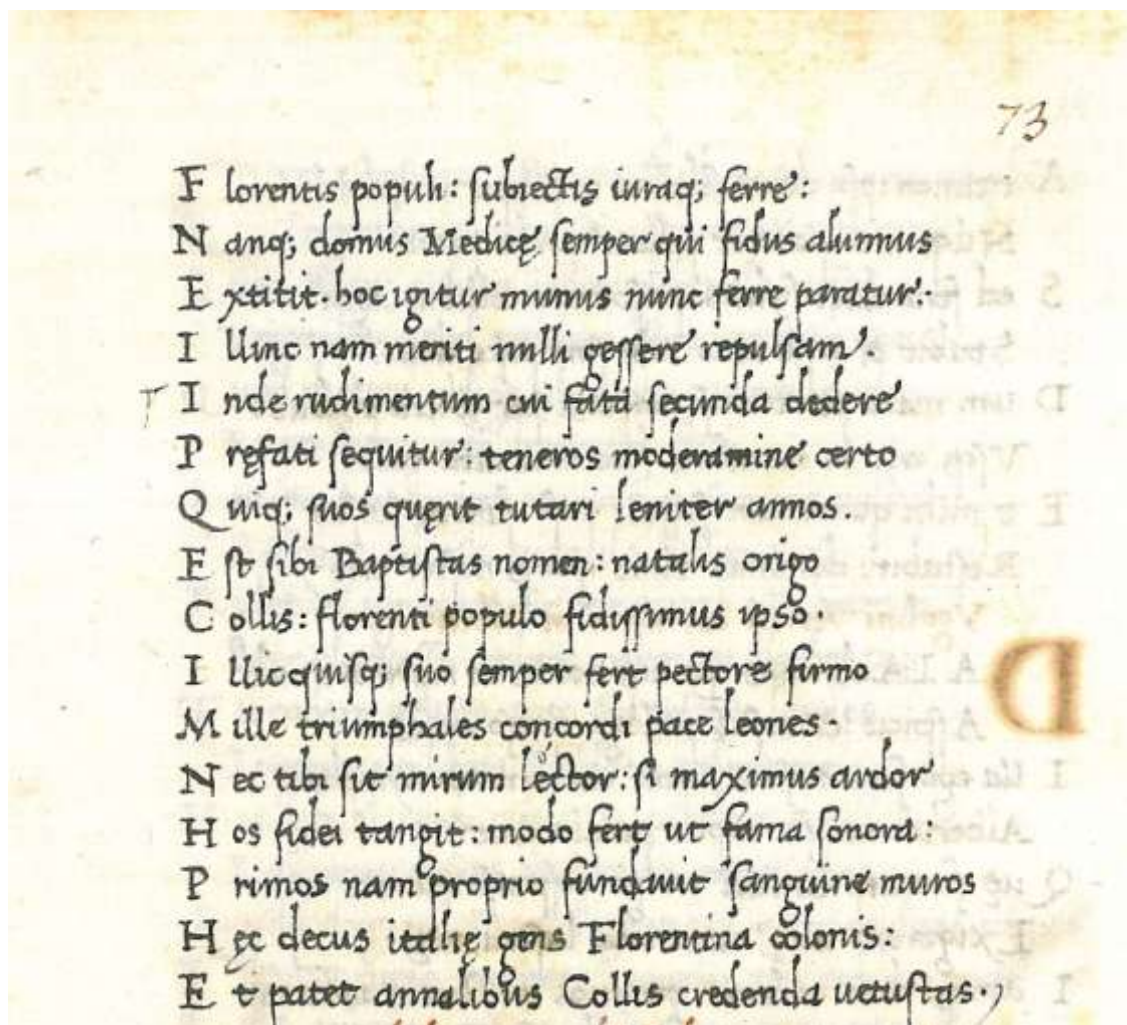 73
Florentis populi: subiectis iuraq; ferre:
Nanq; domus Medicę semper qui fidus alumnus
Extitit. hoc igitur munus nunc ferre paratur:
Illinc nam meriti nulli gessere repulsam.
T Inde rudimentum cui fata secunda dedere
Pręfati sequitur: teneros moderamine certo
Quiq; suos quęrit tutari leniter annos.
Est sibi Baptistas nomen: natalis origo
Collis: florenti populo fidissimus ipso.
Illic quisq; suo semper fert pectore firmo
Mille triumphales concordi pace leones.
Nec tibi sit mirum lector: si maximus ardor
Hos fidei tangit: modo fert ut fama sonora:
Primos nam proprio fundauit sanguine muros
Hęc decus italię gens Florentina colonis:
Et patet annalibus Collis credenda uetustas.